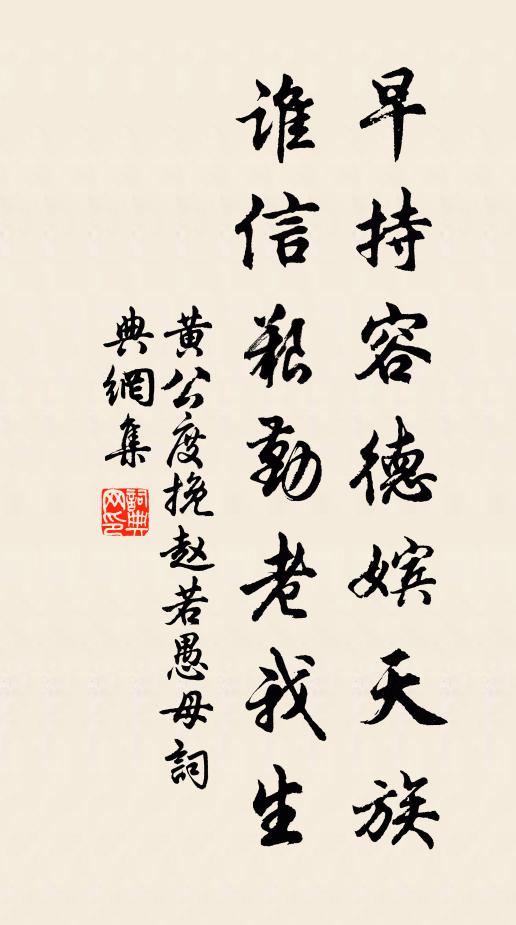 早持容德嫔天族
谁信艱勤老我生
黄公度挽赵若愚母詞
典網集
詞典網印